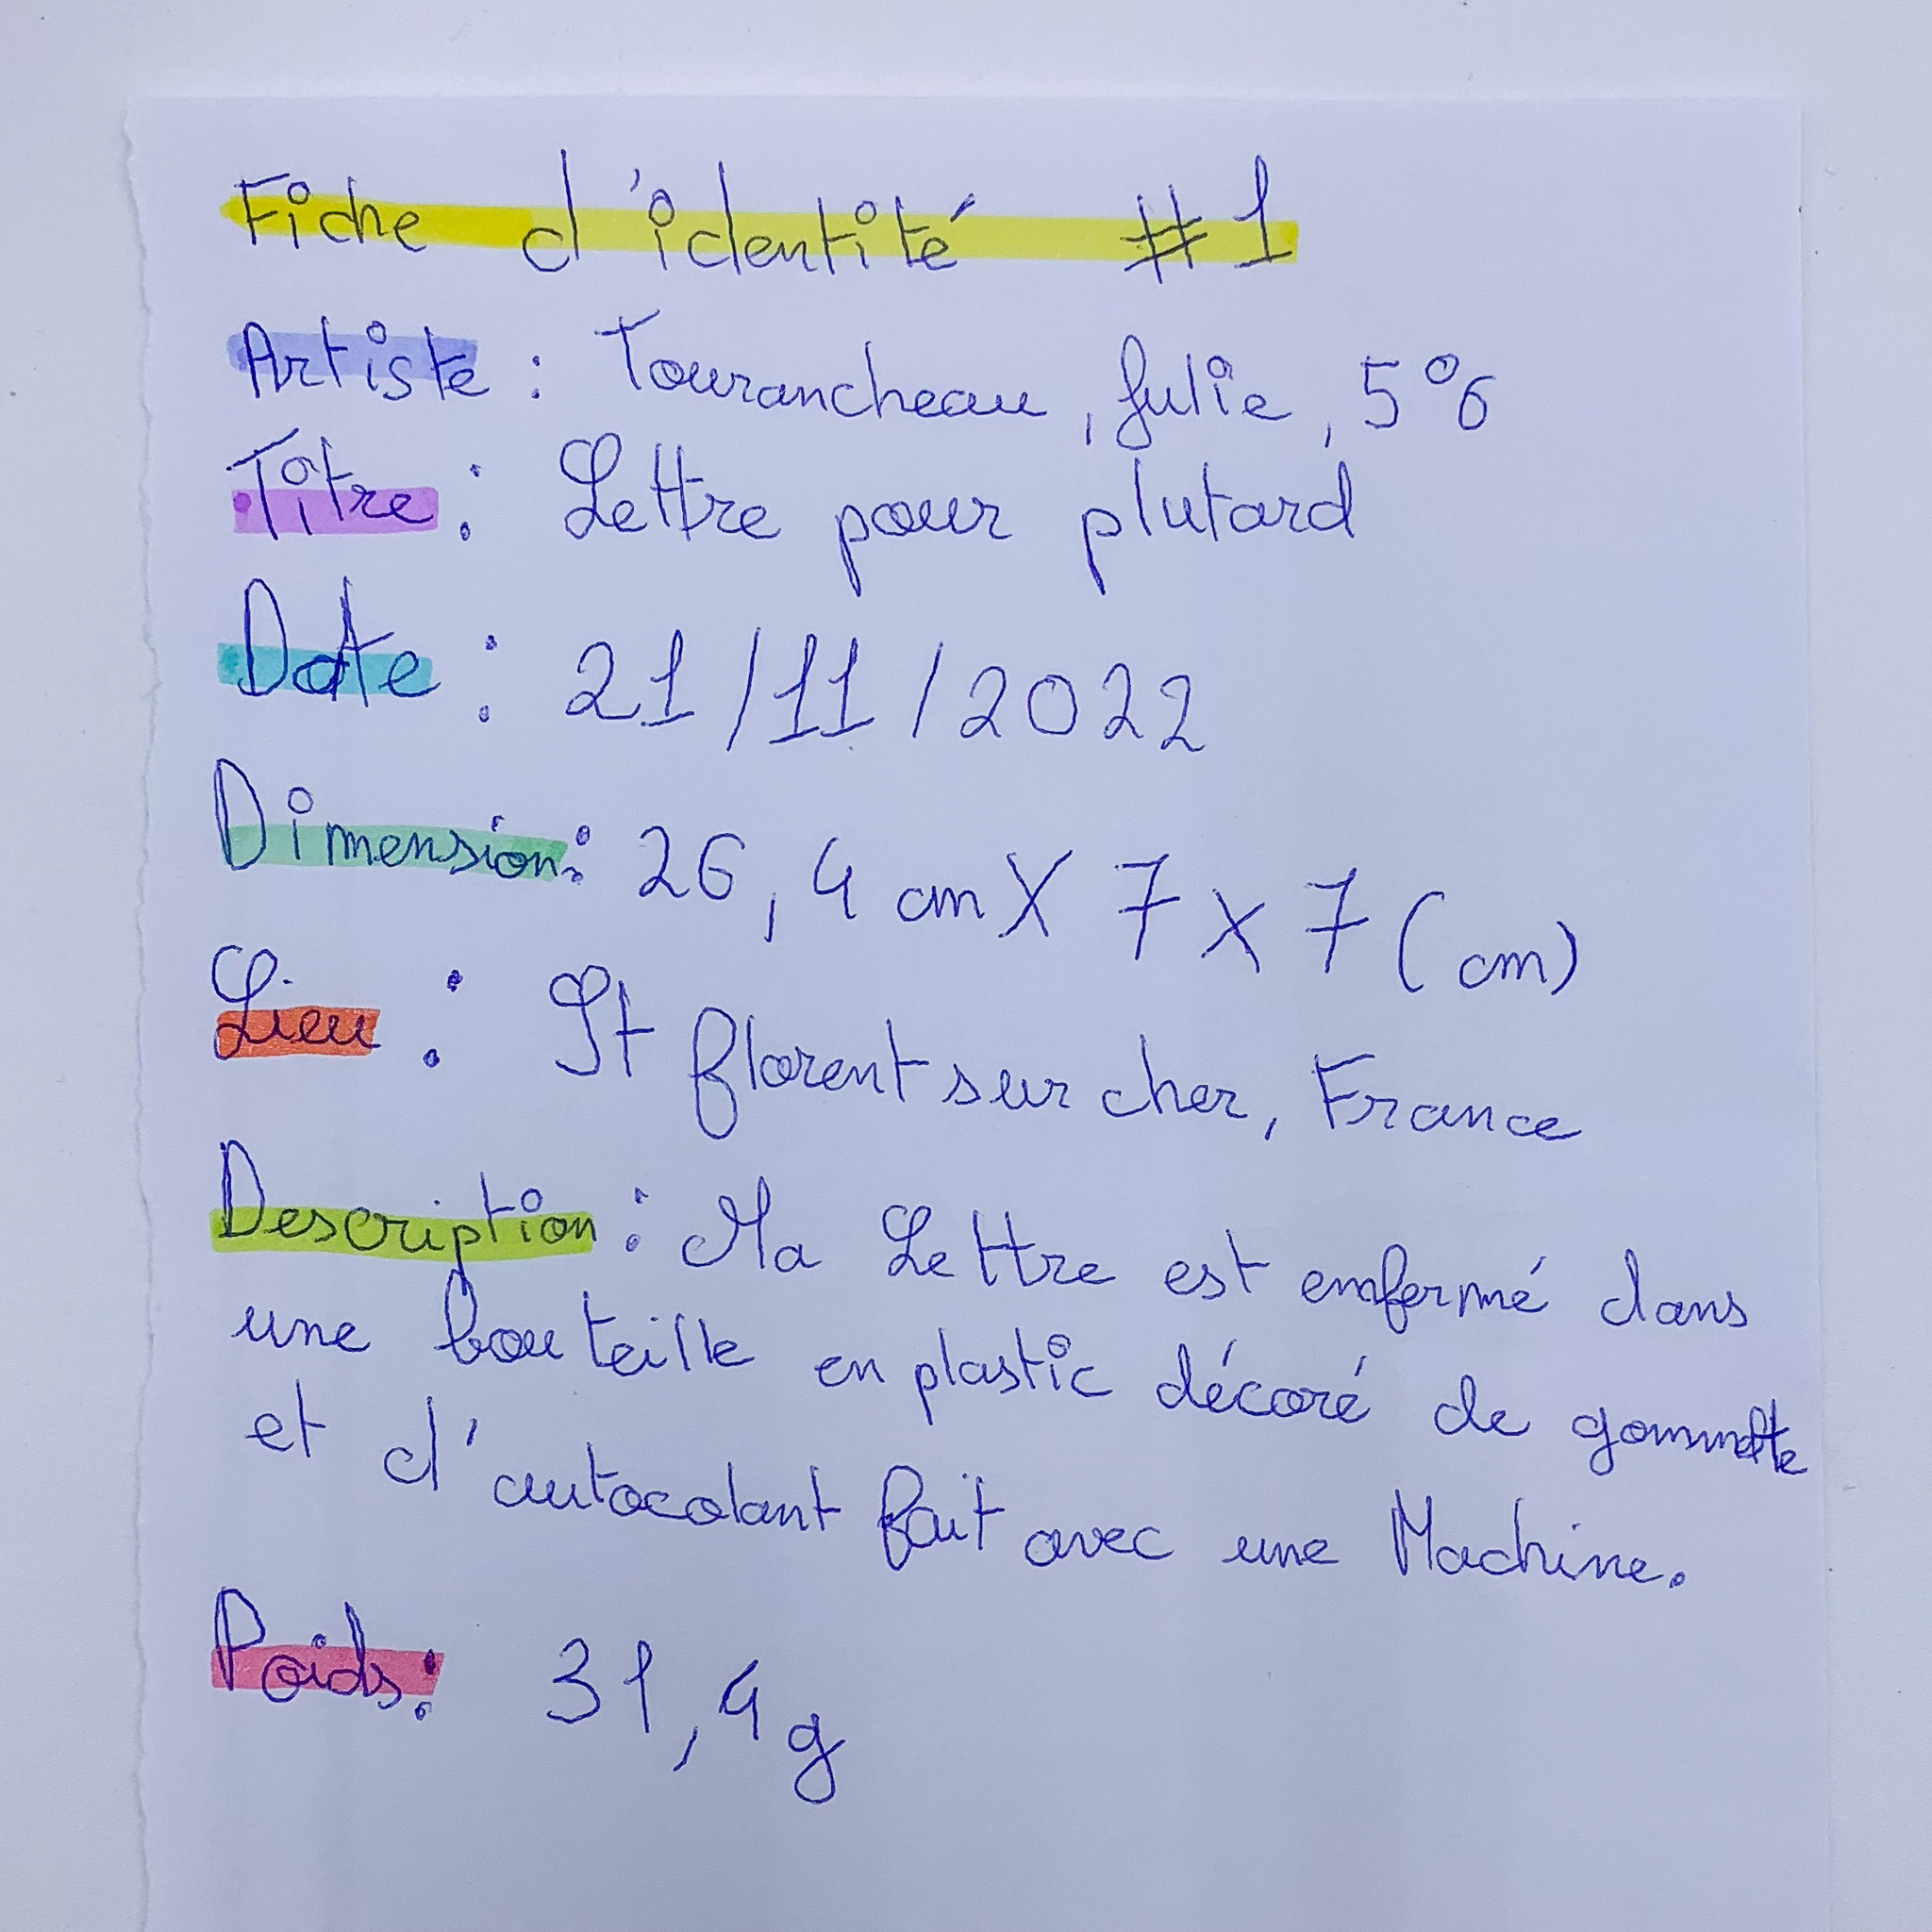 Fiche d'identité #1
Artiste : Tourancheau, Julie, 5°6
Titre : Lettre pour plutard
Date : 21/11/2022
Dimension : 26,4 cm X 7 X 7 (cm)
Lieu : St florent sur cher, France
Description : Ma Lettre est enfermé dans
une bouteille en plastic décoré de gommette
et d'autocolant fait avec une Machine.
Poids : 31,4 g